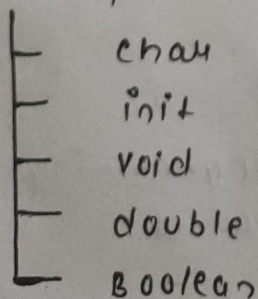 char
init
void
double
Boolean